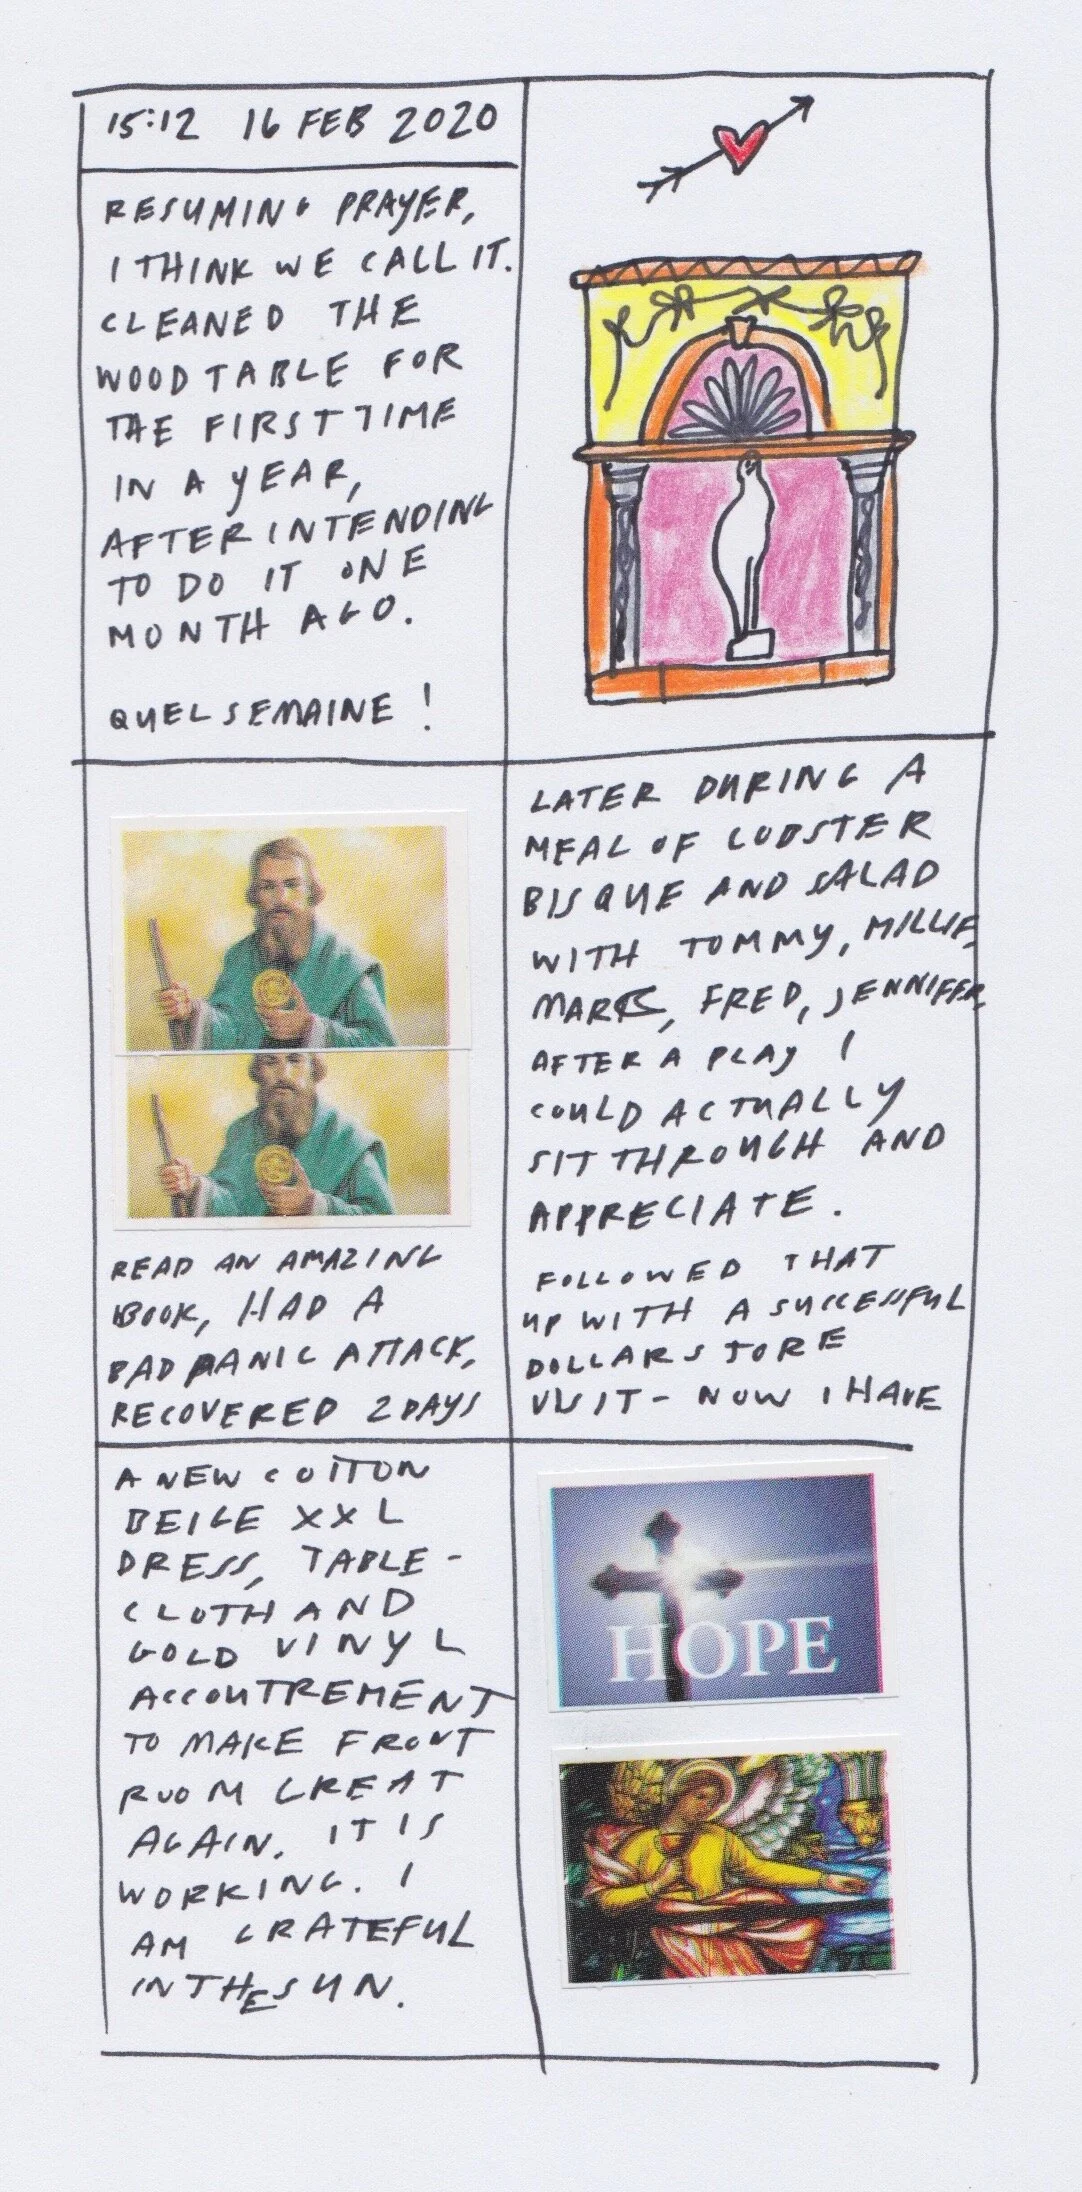 15:12 16 FEB 2020
RESUMING PRAYER,
I THINK WE CALL IT.
CLEANED THE
WOOD TABLE FOR
THE FIRST TIME
IN A YEAR,
AFTER INTENDING
TO DO IT ONE
MONTH AGO.
QUEL SEMAINE!
READ AN AMAZING
BOOK, HAD A
BAD PANIC ATTACK,
RECOVERED 2 DAYS
LATER DURING A
MEAL OF LOBSTER
BISQUE AND SALAD
WITH TOMMY, MILLIE,
MARK, FRED, JENNIFER,
AFTER A PLAY I
COULD ACTUALLY
SIT THROUGH AND
APPRECIATE.
FOLLOWED THAT
UP WITH A SUCCESSFUL
DOLLAR STORE
VISIT - NOW I HAVE
A NEW COTTON
BEIGE XXL
DRESS, TABLE-
CLOTH AND
GOLD VINYL
ACCOUTREMENT
TO MAKE FRONT
ROOM GREAT
AGAIN. IT IS
WORKING. I
AM GRATEFUL
IN THE SUN.
HOPE